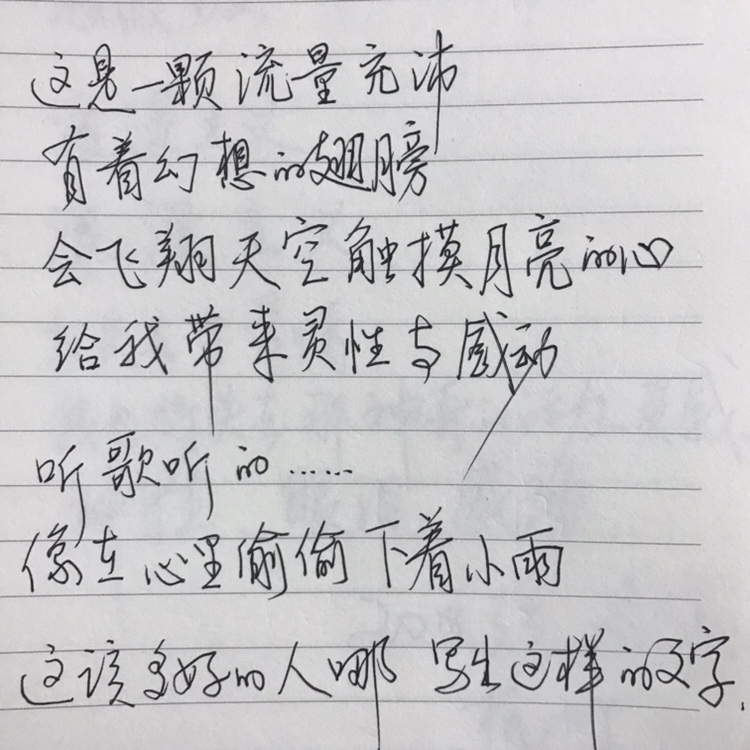 这是一颗流量充沛
有着幻想的翅膀
会飞翔天空触摸月亮的心
给我带来灵性与感动
听歌听的……
像在心里偷偷下着小雨
这该多好的人哪 写出这样的文字.